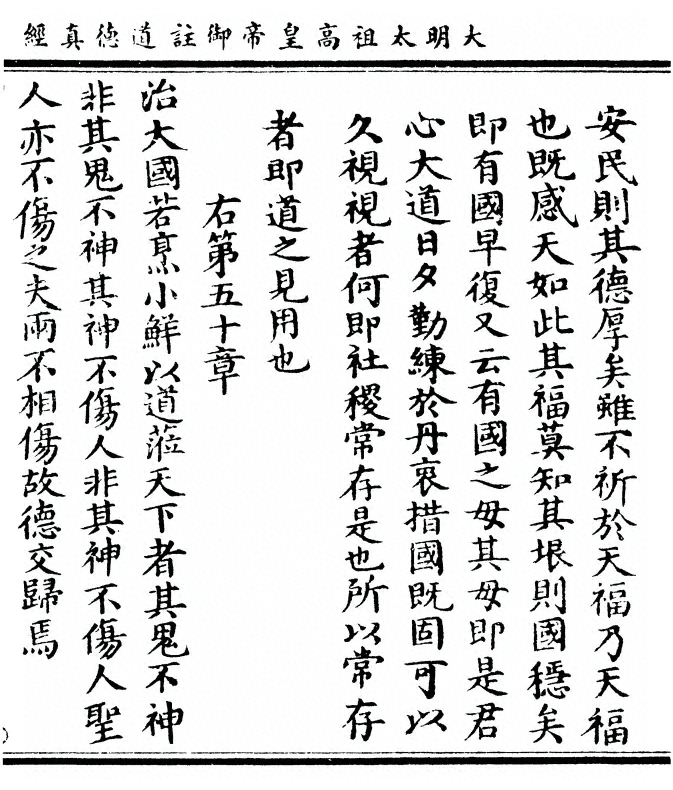 大明太祖高皇帝御註道德真經
安民則其德厚矣雖不祈於天福乃天福
也既感天如此其福莫知其垠則國穩矣
即有國早復又云有國之母其母即是君
心大道日夕勤練於丹衷措國既固可以
久視視者何即社稷常存是也所以常存
者即道之見用也
右第五十章
治大國若烹小鮮以道蒞天下者其鬼不神
非其鬼不神其神不傷人非其神不傷人聖
人亦不傷之夫兩不相傷故德交歸焉